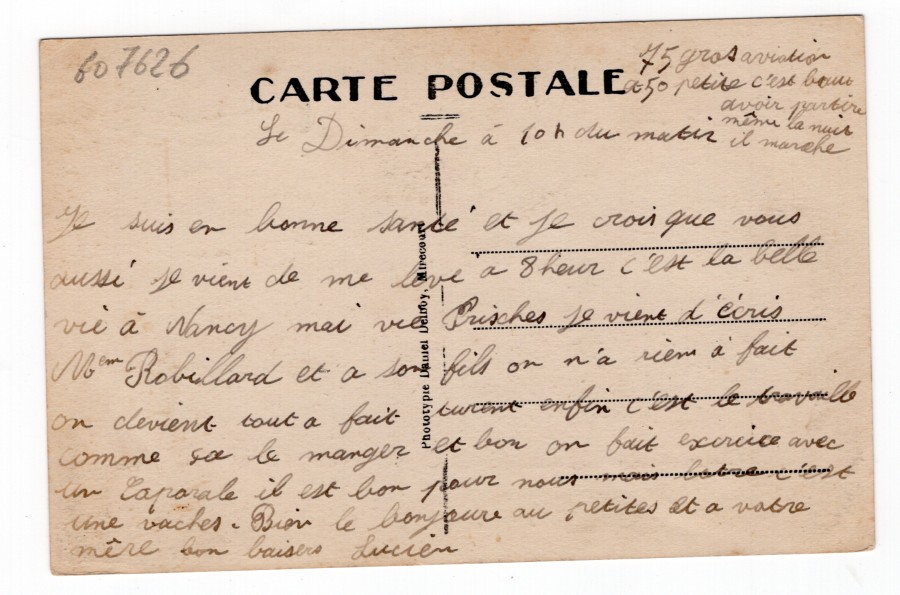 607626
75 gros aviation
CARTE POSTALE
et 50 petite c'est beau
avoir partire
même la nuit
il marche
Le Dimanche à 10 h du matin
Je suis en bonne santé et je crois que vous
aussi je vient de me levé à 8 heur c'est la belle
vie à Nancy mai vie Prisches je vient d'écris
Mem Robillard et a son fils on n'a rien à fait
on devient tout a fait turent enfin c'est le travaille
comme sa le manger et bon on fait exercice avec
un Caporale il est bon pour nous mais c'est
une vaches. Bien le bonjoure au petites et a votre
mère bon baisers Lucien
Phototypie Daniel Delboy, Mirecourt